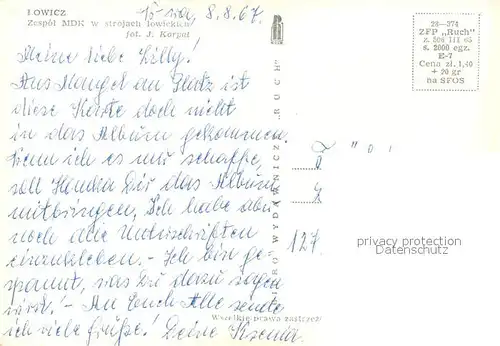 ŁOWICZ
Zespół MDK w strojach łowickich
fot. J. Korpal
W-wa, 8.8.67.
Meine liebe Lilly!
Aus Mangel an Platz ist
diese Karte doch nicht
in das Album gekommen.
Wenn ich es nur schaffe,
soll Hanka Dir das Album
mitbringen. Ich habe aber
noch die Unterschriften
einzukleben. - Ich bin ge-
spannt, was Du dazu sagen
wirst! - An Euch Alle sende
ich viele Grüße! Deine Ksenia
BIURO WYDAWNICZE "RUCH"
Wszelkie prawa zastrzeż.
28-374
ZFP „Ruch"
s. 2000 egz.
E-7
Cena zł. 1,40
+ 20 gr
na SFOS
127.
privacy protection
Datenschutz